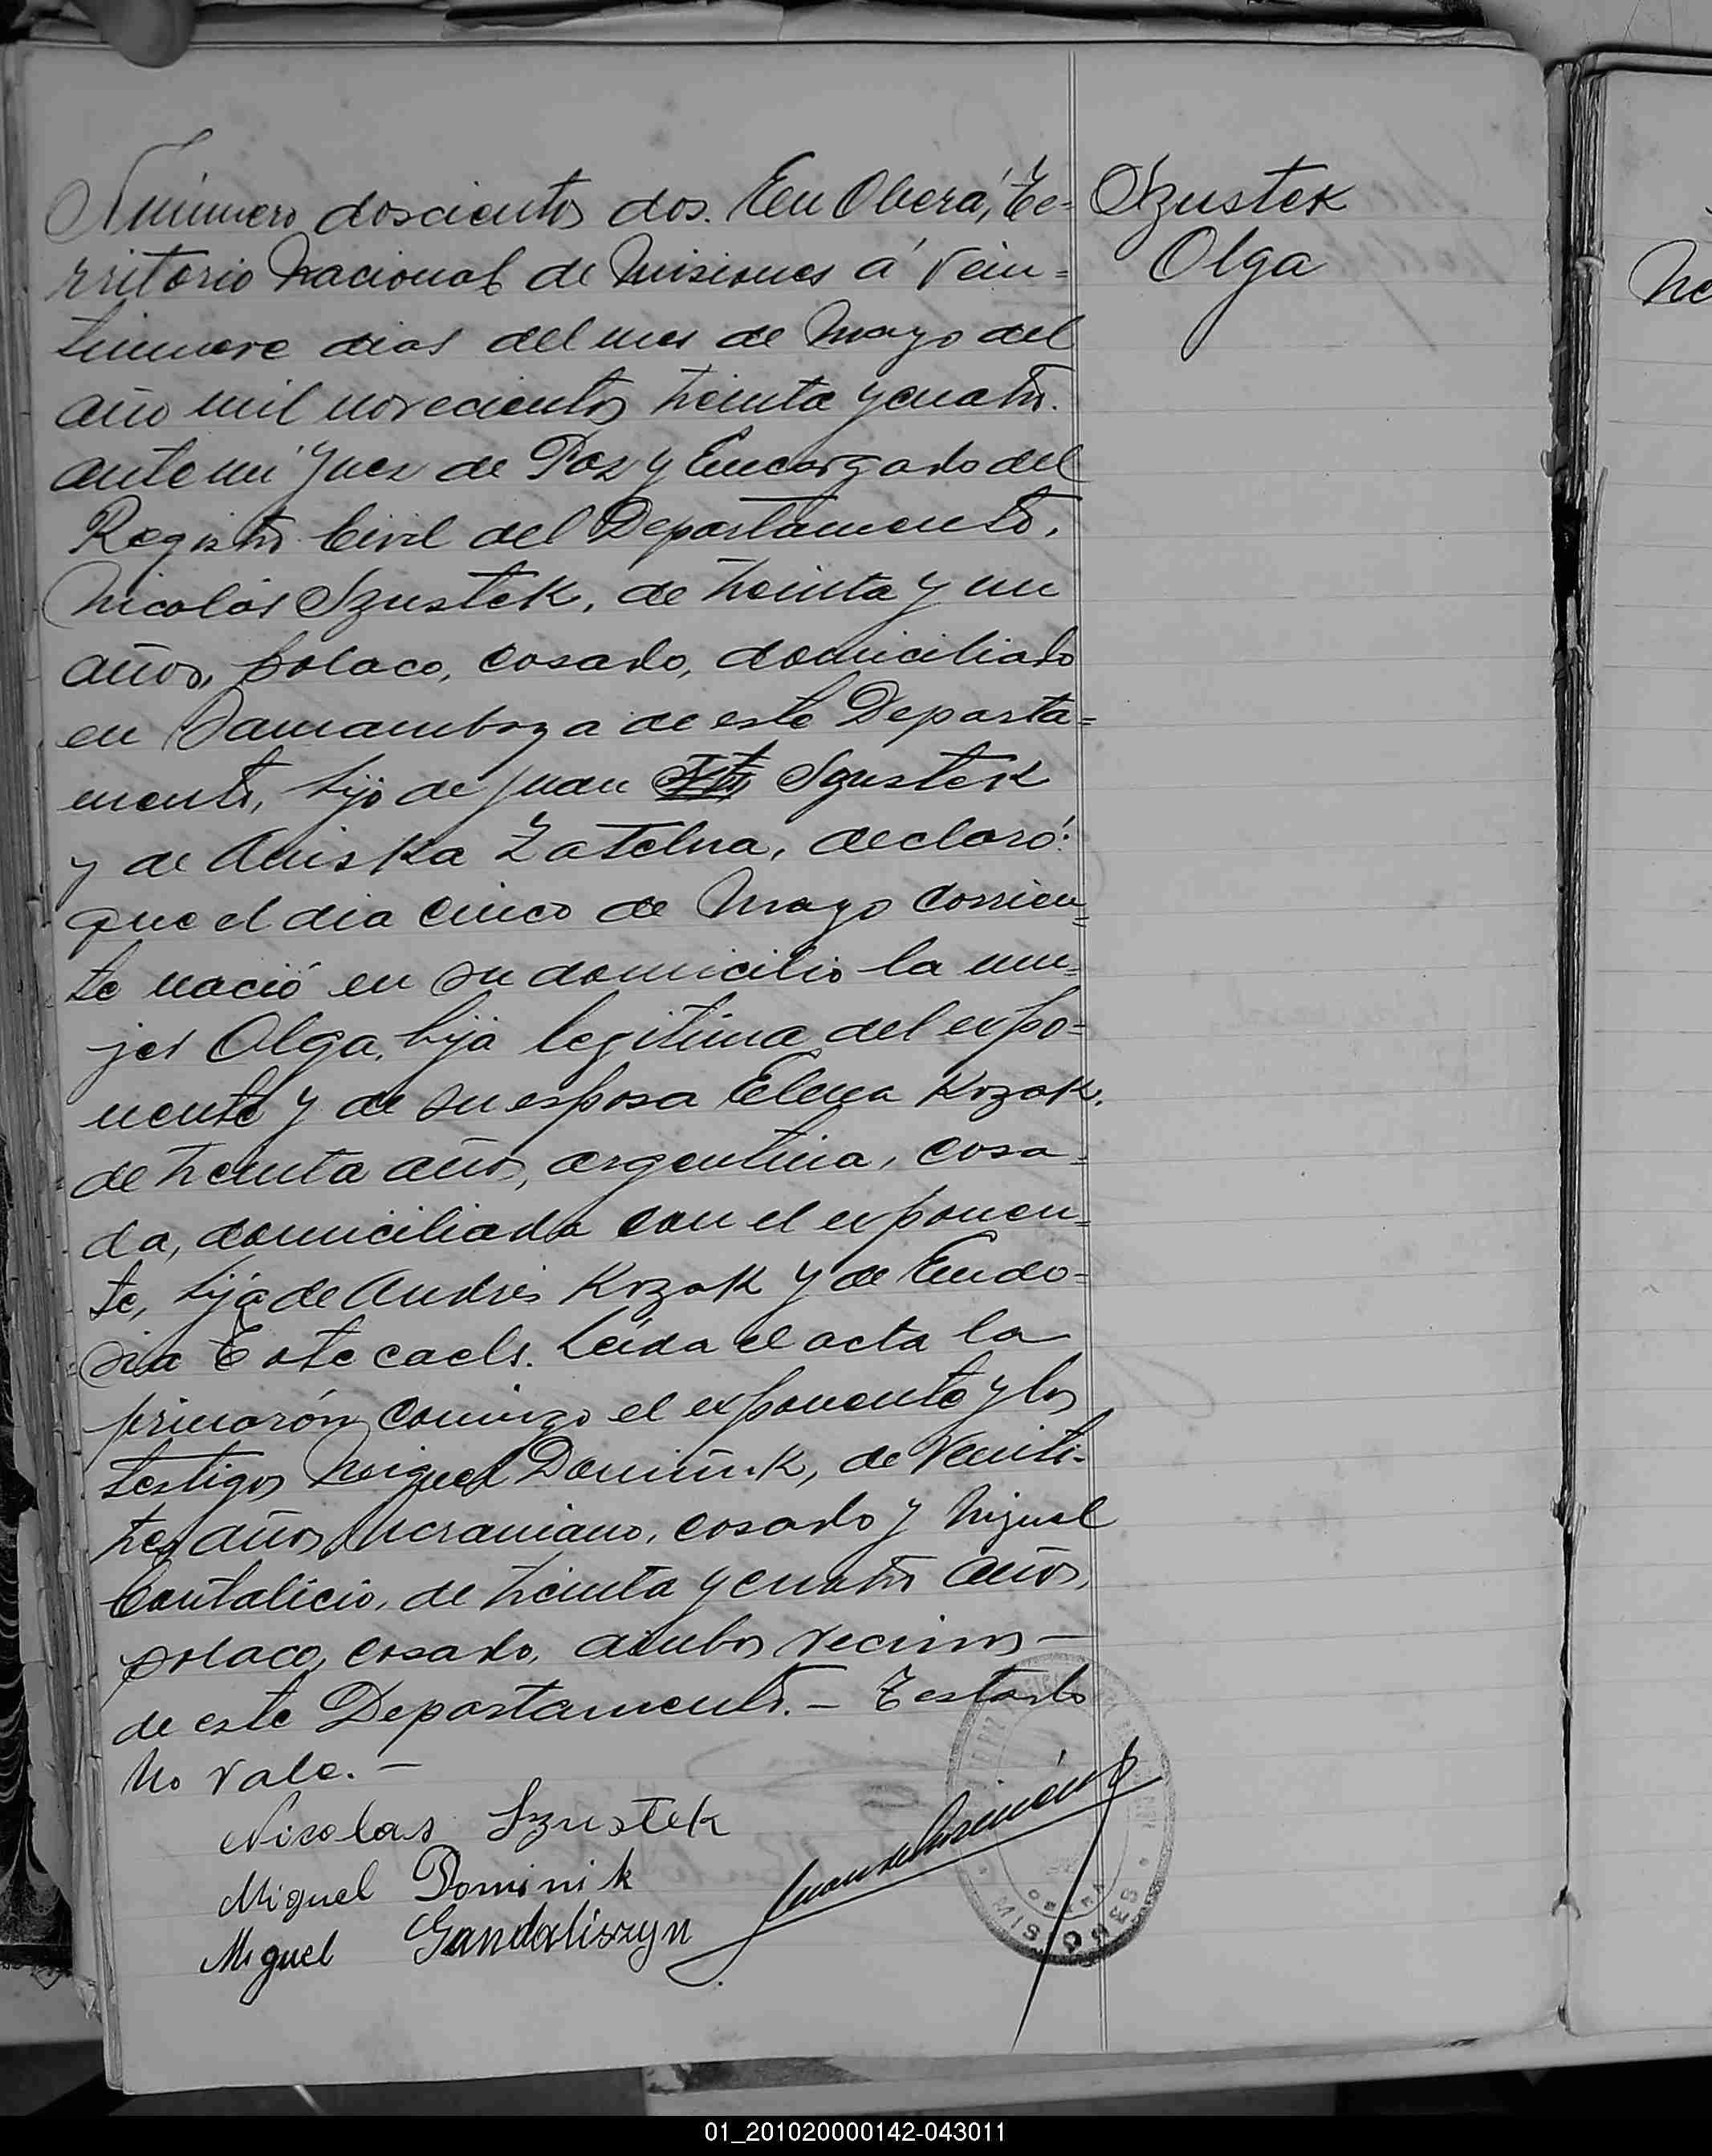 Número doscientos dos. En Oberá, Te-
rritorio Nacional de Misiones á vein-
tinueve dias del mes de Mayo del
año mil novecientos treinta y cuatro.
ante mi Juez de Paz y Encargado del
Registro Civil del Departamento,
Nicolás Szustek, de treinta y un
años, polaco, casado, domiciliado
en Samambaya de este Departa-
mento, hijo de Juan Szustek
y de Aniska Zatelna, declaró:
que el dia cinco de Mayo corrien-
te nació en su domicilio la mu-
jer Olga, hija legitima del expo-
nente y de su esposa Elena Kozak.
de treinta años, argentina, casa-
da, domiciliada con el exponen-
te, hija de Andrés Kozak y de Eudo-
sia. Leida el acta la
firmarón conmigo el exponente y los
testigos Miguel Dominik, de veinti-
tres años, ucraniano, casado y Miguel
Cantalicio, de treinta y cuatro años,
polaco, casado, ambos vecinos —
de este Departamento. — Testado
No vale. —
Nicolas Szustek
Miguel Dominik
Miguel Gandaliszyn
Szustek
Olga
MISIONES
01_201020000142-043011